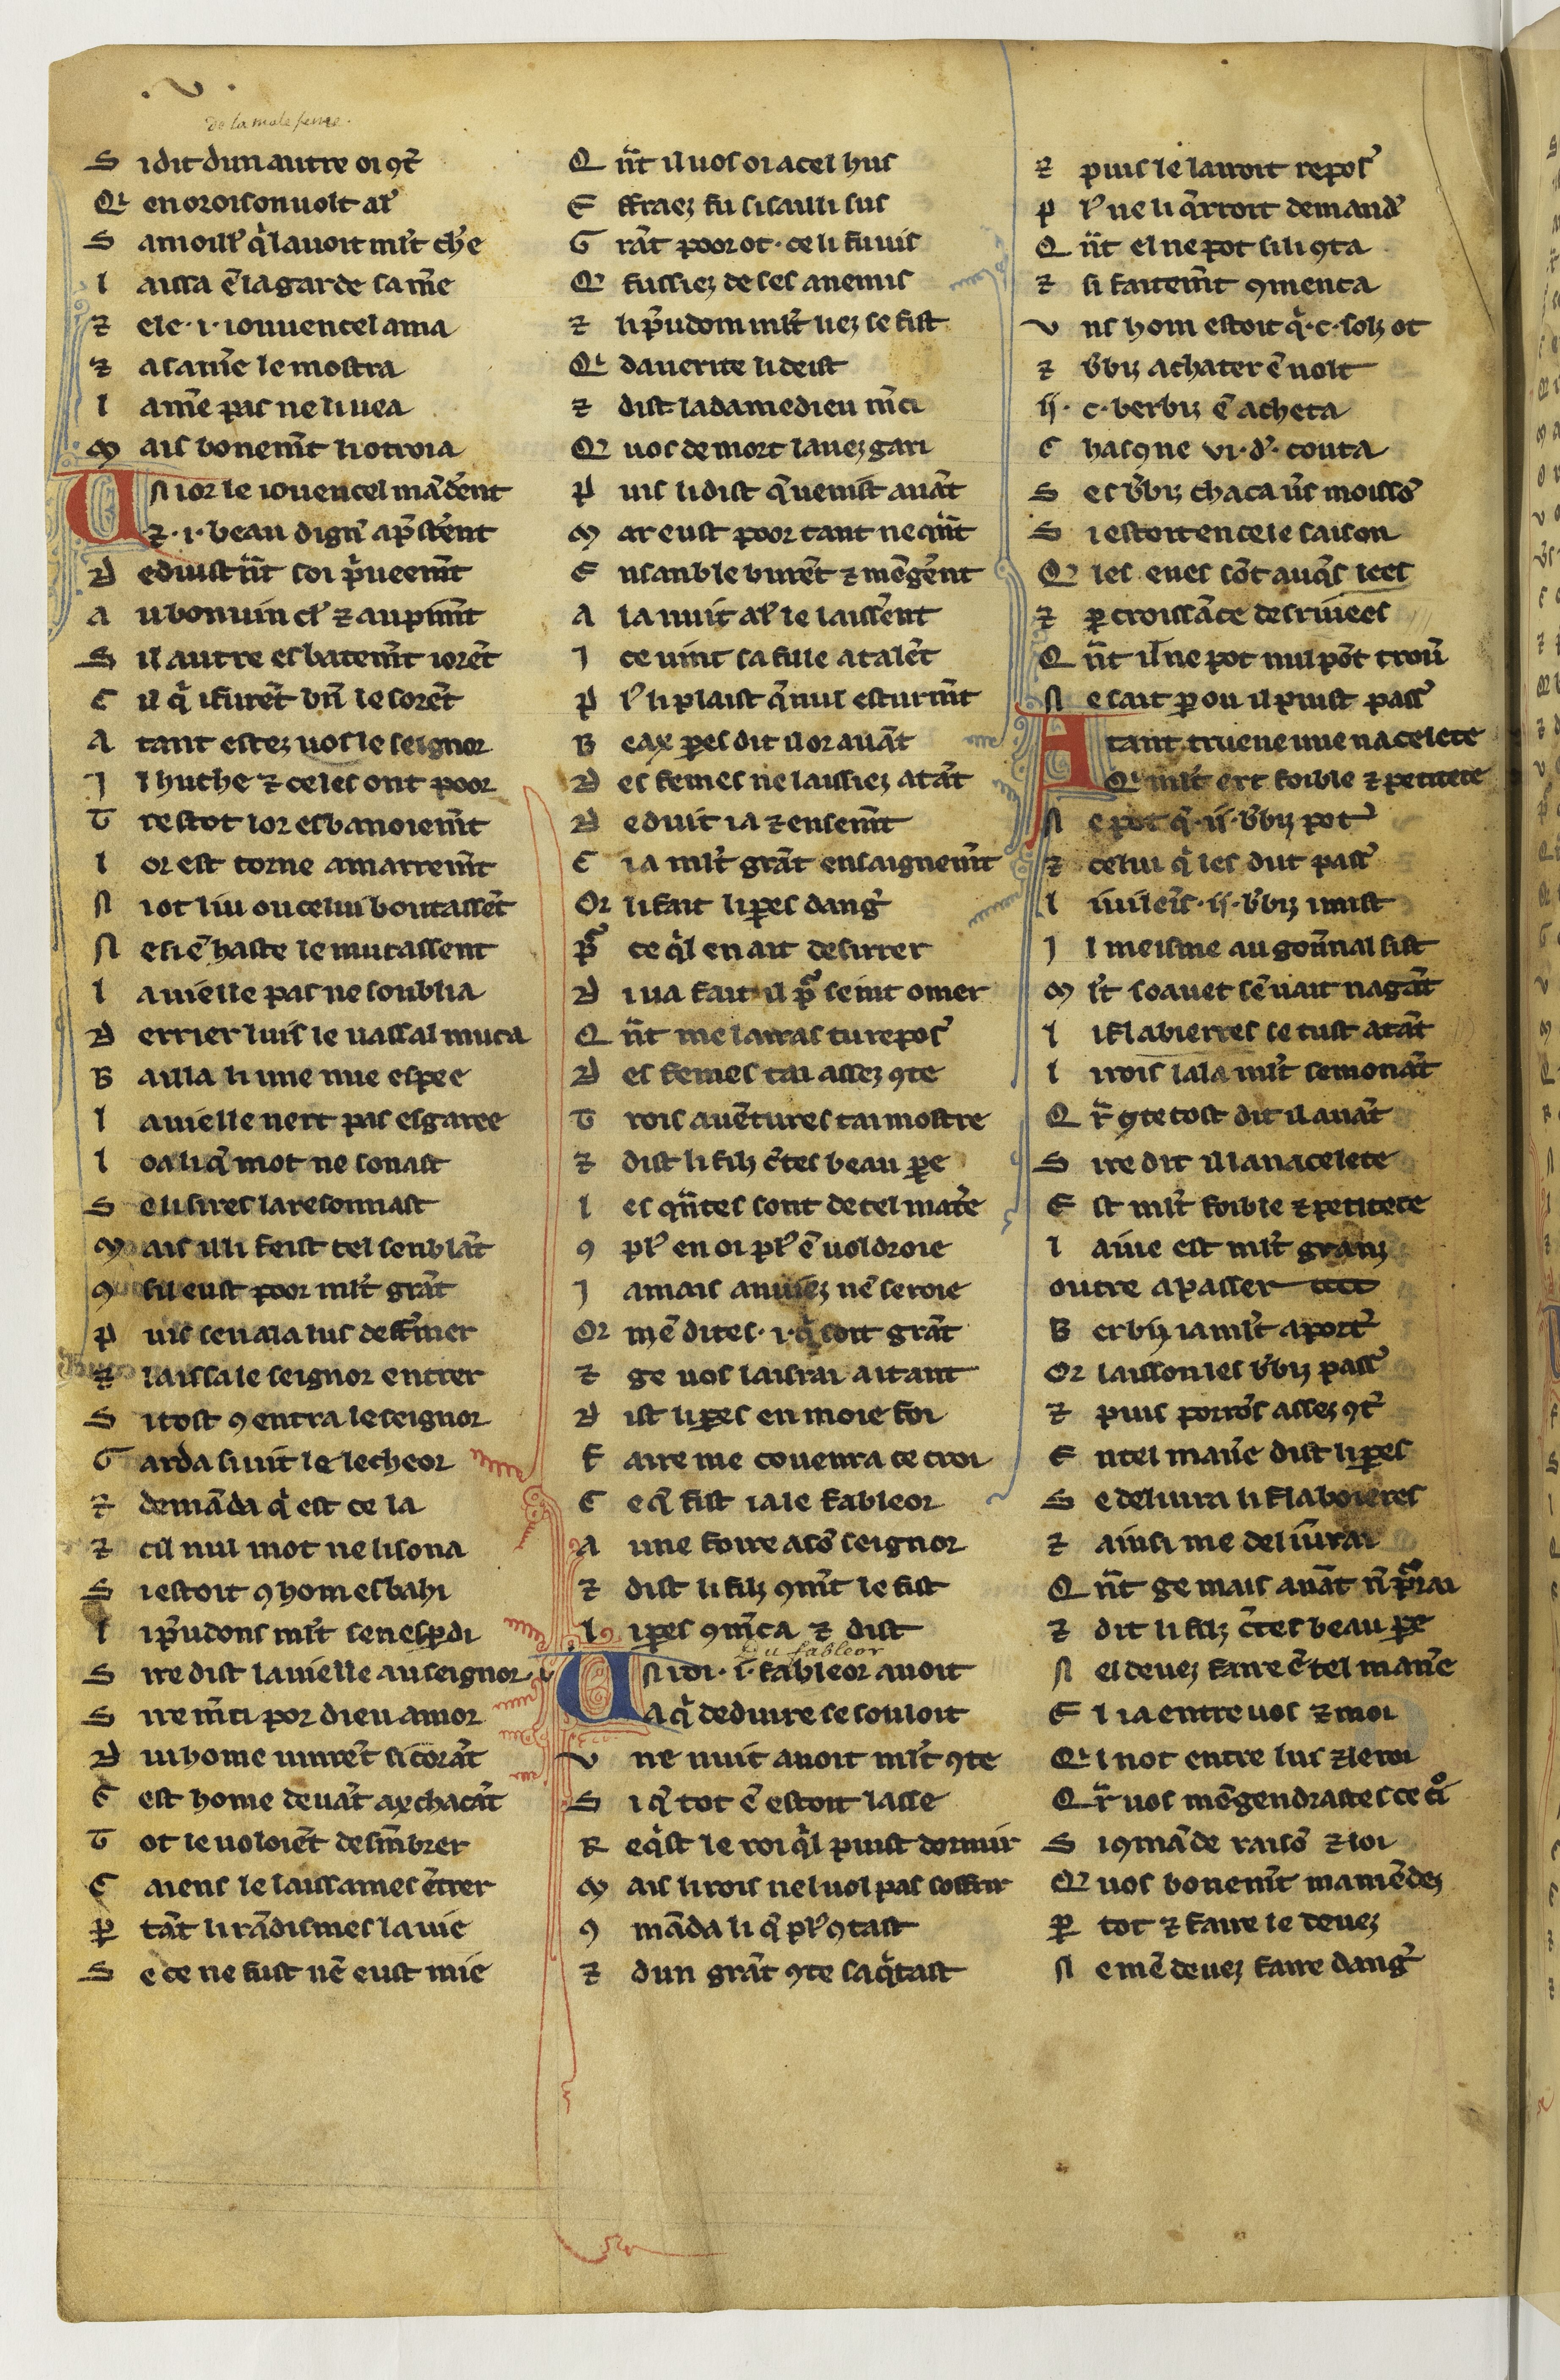 . v .
de la male feme.
S i dit dun autre oi ꝯt̃
Qi en oroison uolt al̾
S a moill̾ q̾ l auoit ml̃t ch̾e
L aissa ẽ la garde sa m̃e
⁊ ele .i. iouuencel ama
⁊ a sa m̃e le mostra
L a m̃e pas ne li uea
M ais bonem̃t li otroia
U N ior le iouencel mãd̾ent
⁊ .i. beau dign̾ ap̃st̾ent
D eduist n̄t soi p̾ueem̃t
A u bon uin cl̾ ⁊ au pim̃t
S il autre esbatem̃t iorẽt
C il q̾ i furẽt bñ le sorẽt
A tant estez uos le seignor
I l huche ⁊ celes ont poor
T restot lor esbanoiem̃t
L or est torne a marrem̃t
N i ot liu ou celui boutassẽt
N e si ẽ haste le mucassent
L a uielle pas ne soublia
D errier luis le uassal muca
B ailla li une nue espee
L a uielle nert pas esgaree
L oa li q̾ mot ne sonast
S e li sires laresonnast
M ais il li feist tel senblãt
ꝯ sil eust poor ml̃t grãt
P uis sen ala luis deff̾mer
⁊ laissa le seignor entrer
S i tost ꝯ entra le seignor
G arda si uit le lecheor
⁊ demãda q̾ est ce la
⁊ cil nul mot ne li sona
S i estoit ꝯ hom esbahi
L i p̾udons ml̃t sen esp̱di
S ire dist la uielle au seignor
S ire m̃ci por dieu amor
D ui home uinrẽt si corãt
C est home deuãt ax chacãt
T ot le uoloiẽt desmẽbrer
C aiens le laissames ẽtrer
P̱ tãt li rãdismes la uie
S e ce ne fust nẽ eust mie
Q ñt il uos oi a cel hus
E ffraez fu si sailli sus
G rãt poor ot . ce li fu uis
Q̾ fussiez de ses anemis
⁊ li p̾udom ml̃t liez se fist
Qi da uerite li deist
⁊ dist la dame dieu m̃ci
Q̾ uos de mort lauez gari
P uis li dist q̾ uenist auãt
M ar eust poor tant ne q̾nt
E nsanble burẽt ⁊ mẽg̾ent
A la nuit al̾ le laiss̾ent
I ce uint sa fille a talẽt
P l̾ li plaist q̾ nus esturm̃t
B eax pe̱s dit il or auãt
D es femes ne laissiez atãt
D eduit i a ⁊ ensem̃t
C i a ml̃t grãt ensaignem̃t
Or li fait li pe̱s dang̾
P̾ ce q̾l en ait desirrer
D i ua fait il p̾ seint omer
Q ñt me lairas tu repos̾
D es femes tai assez ꝯte
T rois auẽtures tai mostre
⁊ dist li filz c̾tes beau pe̱
L es q̾ntes sont de tel mat̾e
ꝯ pl̾ en oi pl̾ ẽ uoldroie
I amais anuiez nẽ seroie
Or mẽ dites .i. q̾ soit grãt
⁊ ge uos laisrai a itant
D ist li pe̱s en moie foi
F aire me couenra ce croi
C e q̾ fist ia le fableor
A une foire a sõ seignor
⁊ dist li filz ꝯm̃t le fist
L i pe̱s ꝯm̃ca ⁊ dist
Du fableor
U N roi .i. fableor auoit
A q̾ deduire se souloit
V ne nuit auoit ml̃t ꝯte
S i q̾ tot ẽ estoit lasse
R eq̾st le roi q̾l puist dormir
M ais li rois nel uol pas soffrir
ꝯ mãda li q̾ pl̾ ꝯtast
⁊ dun grãt ꝯte saq̾tast
⁊ puis le lairoit repos̾
P l̾ ne li q̾rroit demand̾
Q ñt el ne pot si li ꝯta
⁊ si faitem̃t ꝯmenca
V ns hom estoit q̾ .c. solz ot
⁊ b̾biz achater ẽ uolt
ij. c. berbiz ẽ acheta
C hascune vi. d̾. couta
S es b̾biz chaca u̾s moissõ
S i estoit en cele saison
Q̾ les eues sõt auq̾s lees
⁊ p̱ croissãce desriuees
Q ñt il ne pot nul põt trou̾
N e sait p̱ ou il puist pass̾
A tant trueue une nacelete
Qi ml̃t ert foible ⁊ petitete
N e pot q̾ .ii. b̾biz port̾
⁊ celui q̾ les dut pass̾
L i uilẽs .ij. b̾biz i mist
I l meisme au gou̾nal sist
M l̃t soauet sẽ uait nagãt
L i flabierres se tust atãt
L i rois lala ml̃t semonãt
Q r̃ ꝯte tost dit il auãt
S ire dit il la nacelete
E st ml̃t foible ⁊ petitete
L aiue est ml̃t granz
outre a passer
B erbiz i a ml̃t a port̾
Or laisson les b̾biz pass̾
⁊ puis porrõs assez ꝯt̾
E n tel mani̾e dist li pe̱s
S e deliura li flaboieres
⁊ ainsi me deliu̾rai
Q ñt ge mais auãt n̄ p̾rai
⁊ dit li filz c̾tes beau pe̱
N el deuez faire ẽ tel mani̾e
E l i a entre uos ⁊ moi
Qi not entre lui ⁊ le roi
Q r̃ uos mẽgendrastes ce c̾i
S i ꝯmãde raisõ ⁊ loi
Q̾ uos bonem̃t mamẽdez
P̱ tot ⁊ faire le deuez
N e mẽ deuez faire dang̾